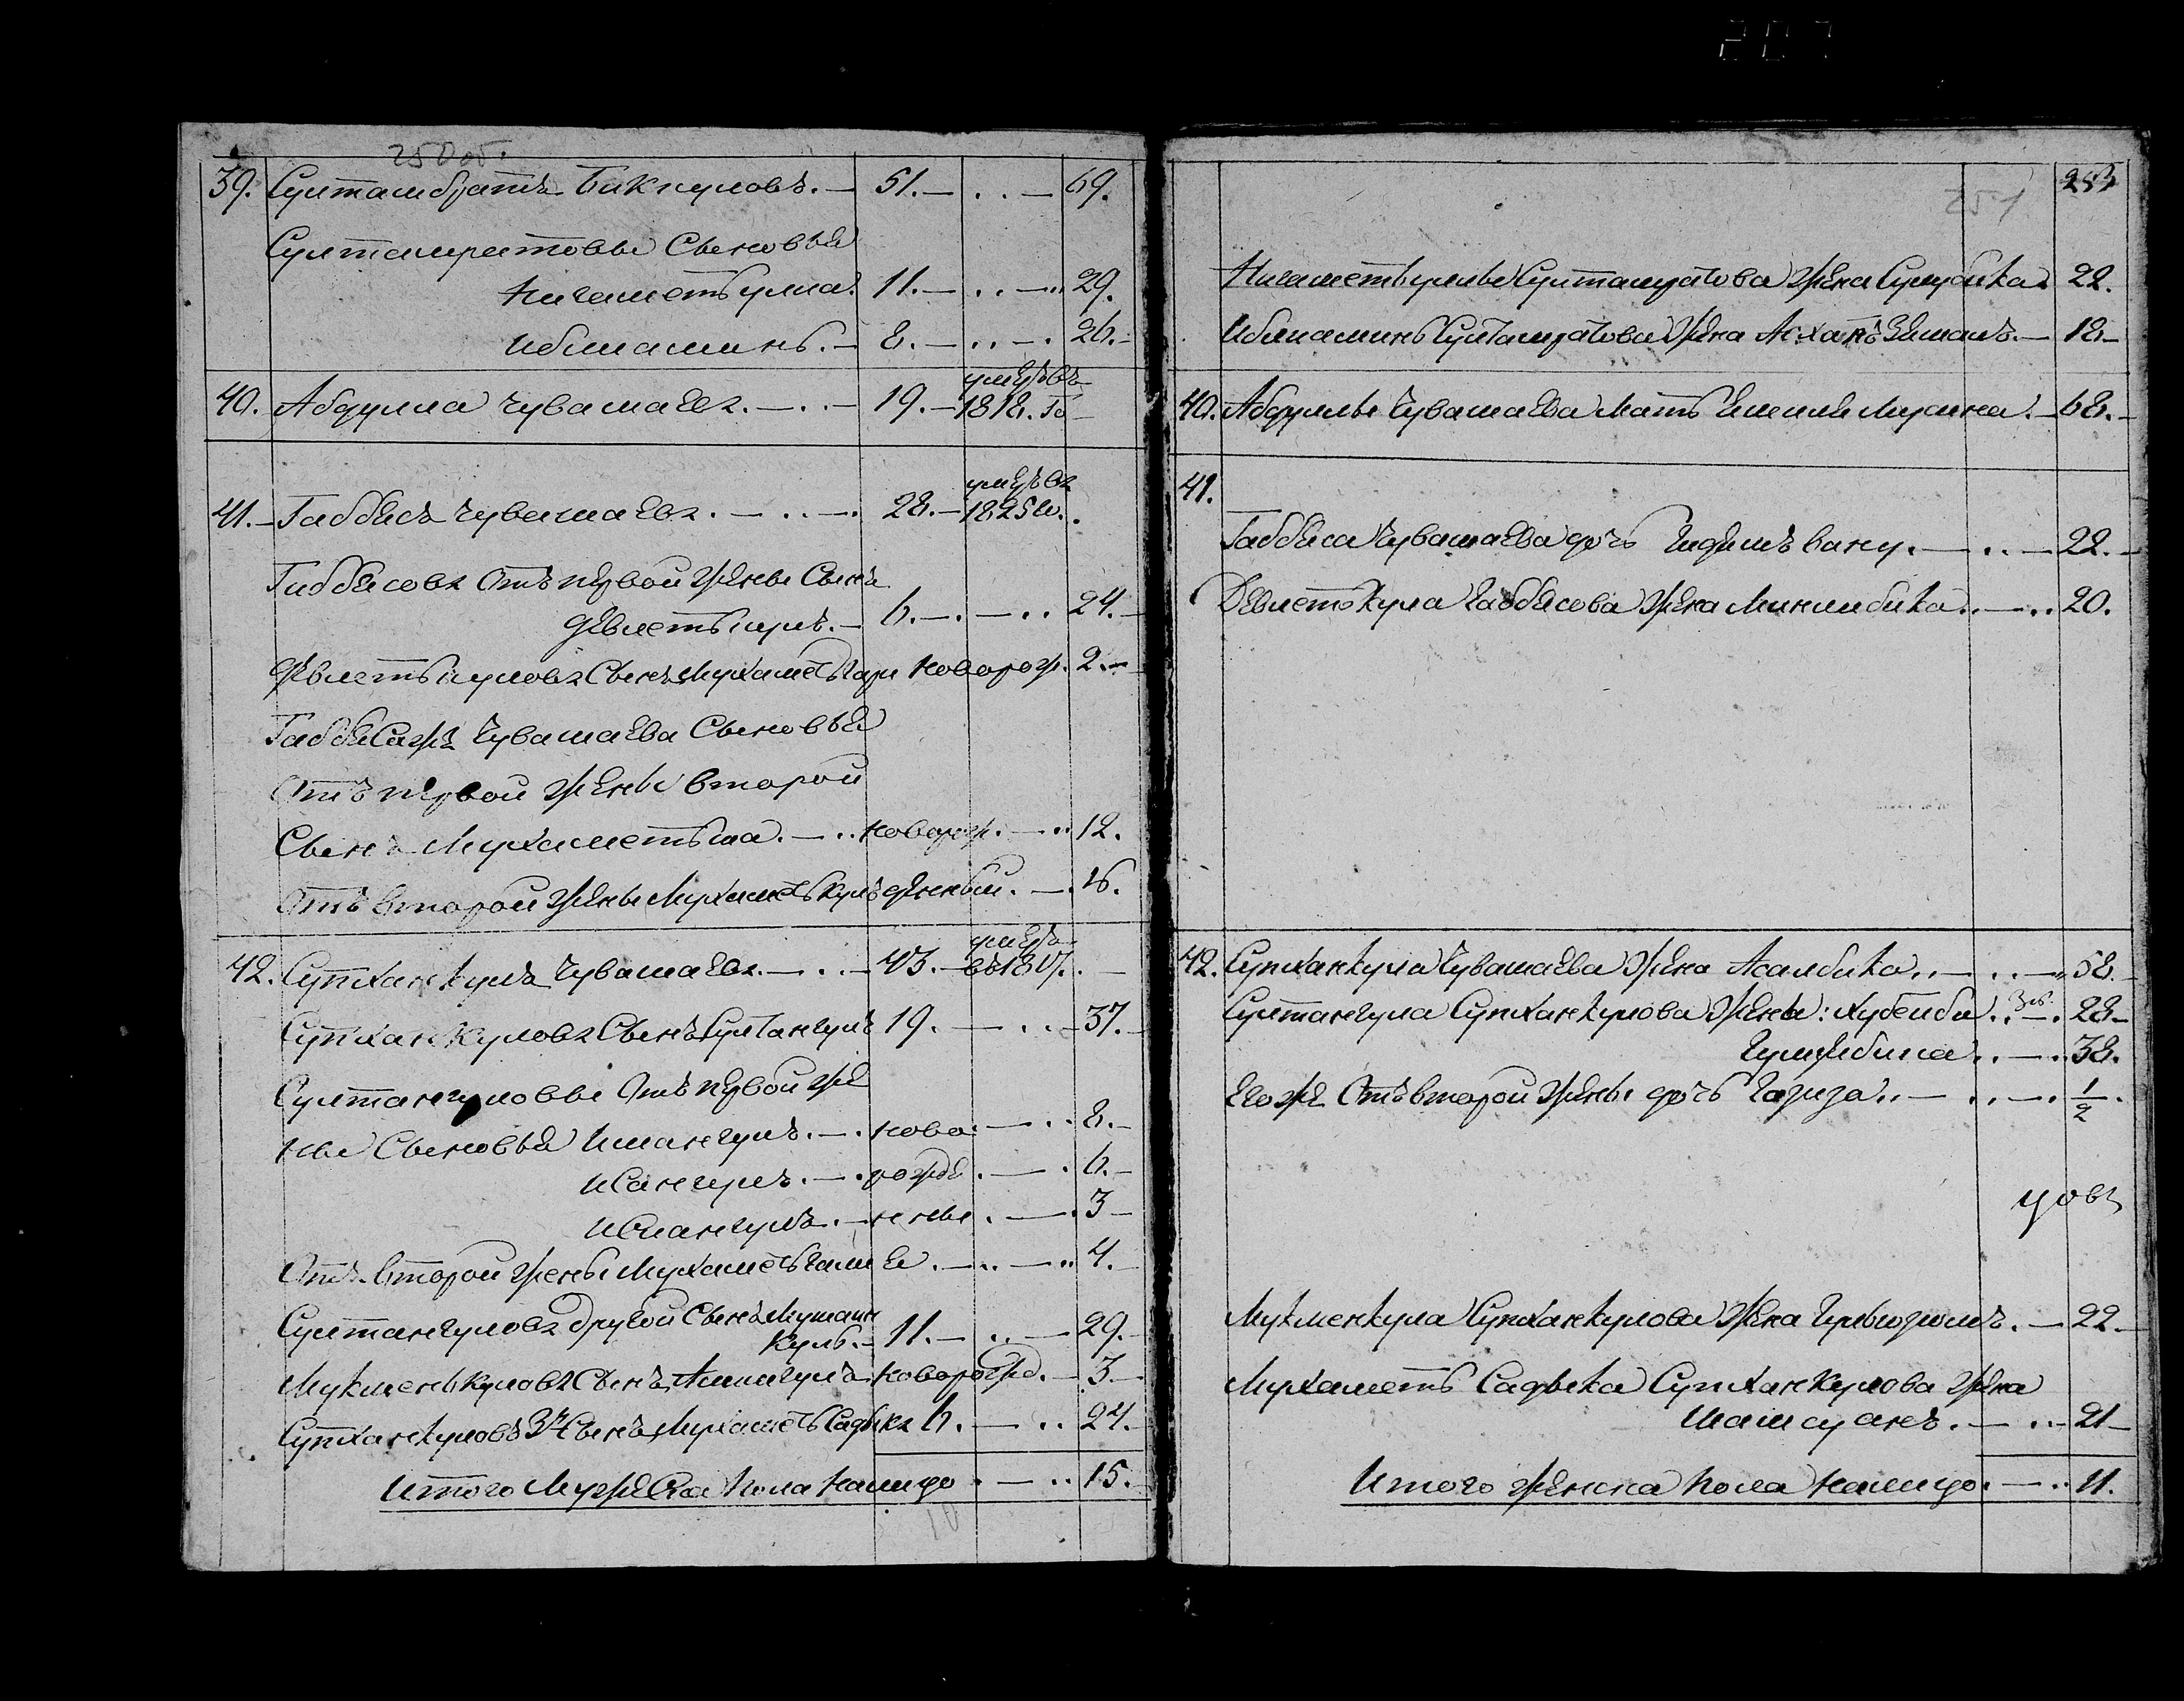 250 об.
39. Султамбратъ Биккуловъ. — 51. — . . — 69.
Султамратовы Сыновья
Нигаметьулла. 11. — . . — .. 29.
Ибниаминь. — 8. — .. — . 26. —
40. Абдулла Чувашаевъ. — . . — 19. — умеръ въ 1818. го —
41. — Габбясъ Чувашаевъ. — . . — . 28. — умеръ въ 1825 м. .
Габбясовъ Отъ первой жены Сынъ
Девлетькулъ. — 6. — . — . . 24. —
Девлеткуловъ Сынъ Мухаметьгари Новорож. 2. —
Габбясаже Чувашаева Сыновья
Отъ первой жены второй
Сынъ Мухаметьша. — . . Новорож. — .. 12.
Отъ второй жены Мухаметькулъ денныи. — . 16.
42. Супханкулъ Чувашаевъ. — . . — 43. — умеръ въ
Супханкуловъ Сынъ Султангулъ 19. — . . — 37. —
Султангуловы Отъ первой же
ны Сыновья Имангулъ. — . ново . — . . 8. —
Исангулъ. — . рожде . — . 6. —
Исмангулъ. — нны . — . 3 —
Отъ второй жены Мухаметьгали е . — .. — .. 4. —
Султангуловъ другой Сынъ
куль. — 11. — . . — 29. —
Мукменькуловъ Сынъ Аминигулъ новорожд. — 3. —
Супханкуловъ 3й Сынъ Мухаметь Садыкъ 6. — . . 24. —
Итого Мужеска Пола Налицо . — . . 15. —
10
251
Нигаметьуллы Султамратова Жена Сулубика 22.
Ибниаминь Султамратова Жена 18 —
40. Абдуллы Чувашаева Мать — 68. —
41.
Габбяса Чувашаева дочь . — . . — 22. —
Девлеткула Габбясова Жена Минлибика . . — . . 20.
42. Супханкула Чувашаева Жена Асылбика . . — . . — .. 58. —
Султангула Супханкулова Жены: Хубейби . . — . 28 —
Гульябика . . — .. 38.
Егоже Отъ второй Жены дочь Газиза . . — . . — . 1/2 .
Мукменкула Супханкулова Жена . — 22 —
Мухаметь Садыка Супханкулова Жена
Шамсуанъ . — . . — 21 —
Итого Женска Пола Налицо . — . . 11.